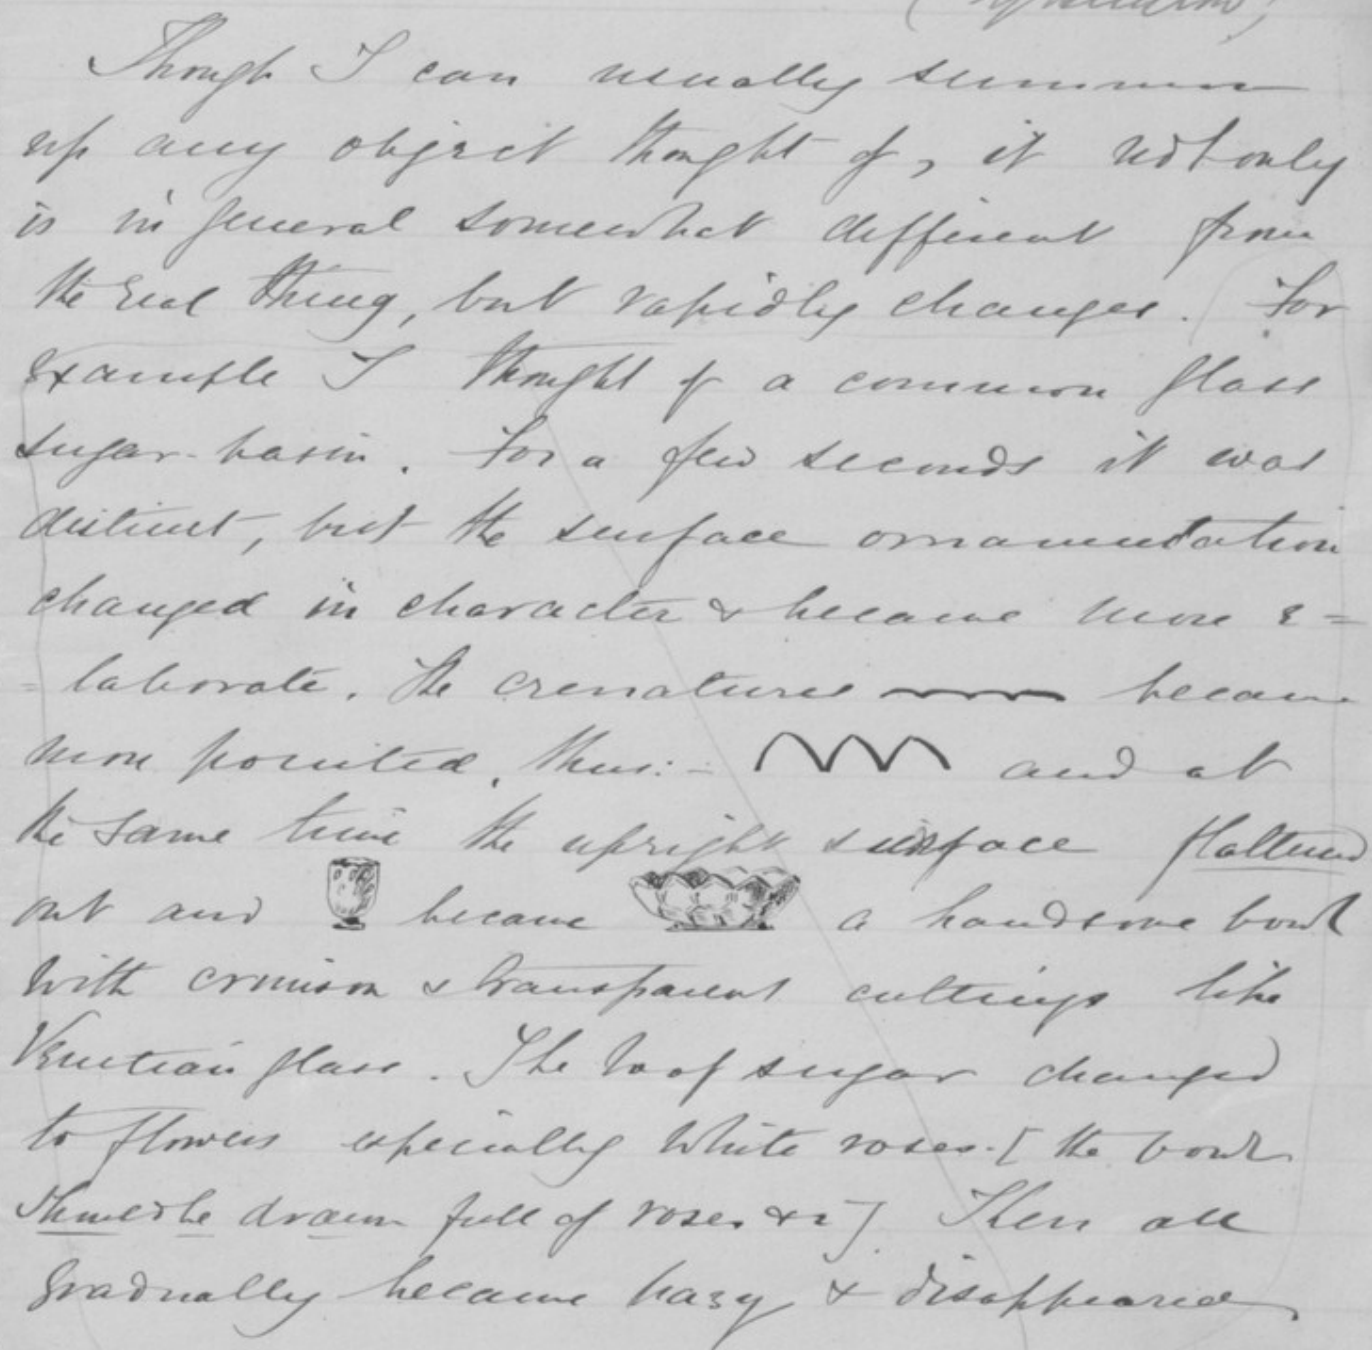 Though I can usually summon
up any object thought of, it not only
is in general somewhat different from
the real thing, but rapidly changes. For
example I thought of a common glass
sugar-basin. For a few seconds it was
distinct, but the surface ornamentation
changed in character & became more e=
=laborate. The crenatures became
more pointed, thus:- and at
the same time the upright surface flattened
out and became a handsome bowl
with crimson & transparent cuttings like
Venetian glass. The loaf sugar changed
to flowers especially white roses. [the bowl
should be drawn full of roses &c] Then all
gradually became hazy & disappeared